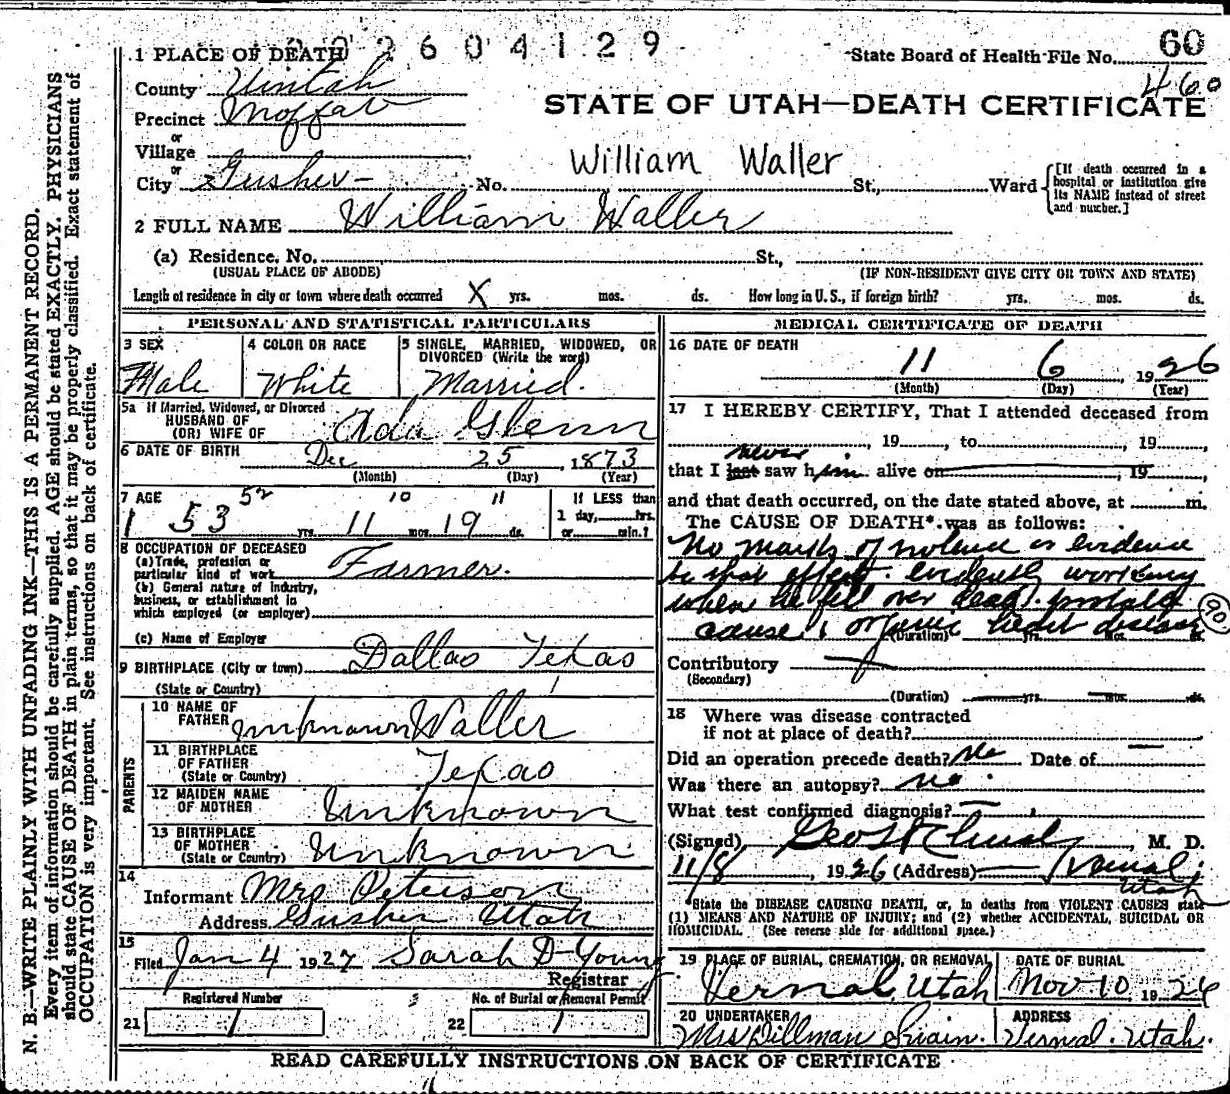 2604129
1 PLACE OF DEATH
State Board of Health File No. 60
460
County Uintah
STATE OF UTAH—DEATH CERTIFICATE
Precinct Moffat
or
Village
William Waller
or
City Gusher - No. St., Ward
[If death occurred in a hospital or institution give its NAME instead of street and number.]
2 FULL NAME William Waller
(a) Residence, No. St.,
(USUAL PLACE OF ABODE) (IF NON-RESIDENT GIVE CITY OR TOWN AND STATE)
Length of residence in city or town where death occurred X yrs. mos. ds. How long in U. S., if foreign birth? yrs. mos. ds.
PERSONAL AND STATISTICAL PARTICULARS
3 SEX Male
4 COLOR OR RACE White
5 SINGLE, MARRIED, WIDOWED, OR DIVORCED (Write the word) Married.
5a If Married, Widowed, or Divorced
HUSBAND OF
(OR) WIFE OF Ada Glenn
6 DATE OF BIRTH Dec 25, 1873
(Month) (Day) (Year)
7 AGE 52 10 11
53 yrs. 11 mos. 19 ds.
If LESS than
1 day, hrs.
or min.?
8 OCCUPATION OF DECEASED
(a) Trade, profession or
particular kind of work Farmer.
(b) General nature of industry,
business, or establishment in
which employed (or employer)
(c) Name of Employer
9 BIRTHPLACE (City or town) Dallas Texas
(State or Country)
PARENTS
10 NAME OF
FATHER Unknown Waller
11 BIRTHPLACE
OF FATHER
(State or Country) Texas
12 MAIDEN NAME
OF MOTHER Unknown
13 BIRTHPLACE
OF MOTHER
(State or Country) Unknown
14
Informant Mrs Peterson
Address Gusher Utah
15
Filed Jan 4 1927 Sarah D Young
Registrar
Registered Number
21 1
No. of Burial or Removal Permit
22 1
MEDICAL CERTIFICATE OF DEATH
16 DATE OF DEATH
11 6, 1926
(Month) (Day) (Year)
17 I HEREBY CERTIFY, That I attended deceased from
, 19, to, 19,
never
that I last saw him alive on 19
and that death occurred, on the date stated above, at m.
The CAUSE OF DEATH* was as follows:
No marks of violence or evidence
to that effect. evidently working
when he fell over dead. probable
cause, organic heart disease 90
(Duration) yrs. mos. ds.
Contributory
(Secondary)
(Duration) yrs. mos. ds.
18 Where was disease contracted
if not at place of death?
Did an operation precede death? No Date of
Was there an autopsy? no.
What test confirmed diagnosis?
(Signed), M. D.
11/8, 1926 (Address) Vernal,
Utah
*State the DISEASE CAUSING DEATH, or, in deaths from VIOLENT CAUSES state
(1) MEANS AND NATURE OF INJURY; and (2) whether ACCIDENTAL, SUICIDAL OR
HOMICIDAL. (See reverse side for additional space.)
19 PLACE OF BURIAL, CREMATION, OR REMOVAL
Vernal, Utah
DATE OF BURIAL
Nov 10, 1926
20 UNDERTAKER
Mrs Dillman Swain.
ADDRESS
Vernal. Utah.
READ CAREFULLY INSTRUCTIONS ON BACK OF CERTIFICATE
N. B.—WRITE PLAINLY WITH UNFADING INK—THIS IS A PERMANENT RECORD.
Every item of information should be carefully supplied. AGE should be stated EXACTLY. PHYSICIANS
should state CAUSE OF DEATH in plain terms, so that it may be properly classified. Exact statement of
OCCUPATION is very important. See instructions on back of certificate.